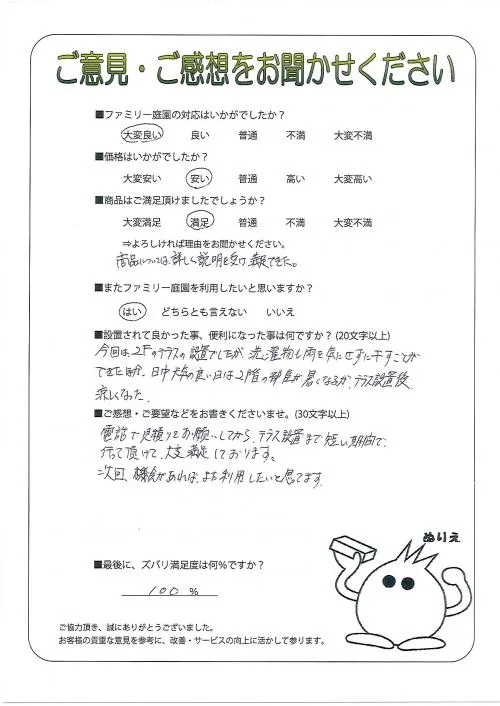 ご意見・ご感想をお聞かせください
■ファミリー庭園の対応はいかがでしたか?
大変良い 良い 普通 不満 大変不満
■価格はいかがでしたか?
大変安い 安い 普通 高い 大変高い
■商品はご満足頂けましたでしょうか?
大変満足 満足 普通 不満 大変不満
⇒よろしければ理由をお聞かせください。
商品については、詳しく説明を受け、満足できた。
■またファミリー庭園を利用したいと思いますか?
はい どちらとも言えない いいえ
■設置されて良かった事、便利になった事は何ですか? (20文字以上)
今回は、2Fのテラスの設置でしたが 洗濯物も雨を気にせずに干すことが
できたほか、日中天気の良い日は2階の部屋が暑くなるが、テラス設置後
涼しくなった。
■ご感想・ご要望などをお書きくださいませ。(30文字以上)
電話で見積りをお願いしてから、テラス設置まで短い期間で、
行って頂けて、大変満足しております。
次回、機会があれば、また利用したいと思てます。
ぬりえ
■最後に、ズバリ満足度は何%ですか?
100 %
ご協力頂き、誠にありがとうございました。
お客様の貴重な意見を参考に、改善・サービスの向上に活かして参ります。